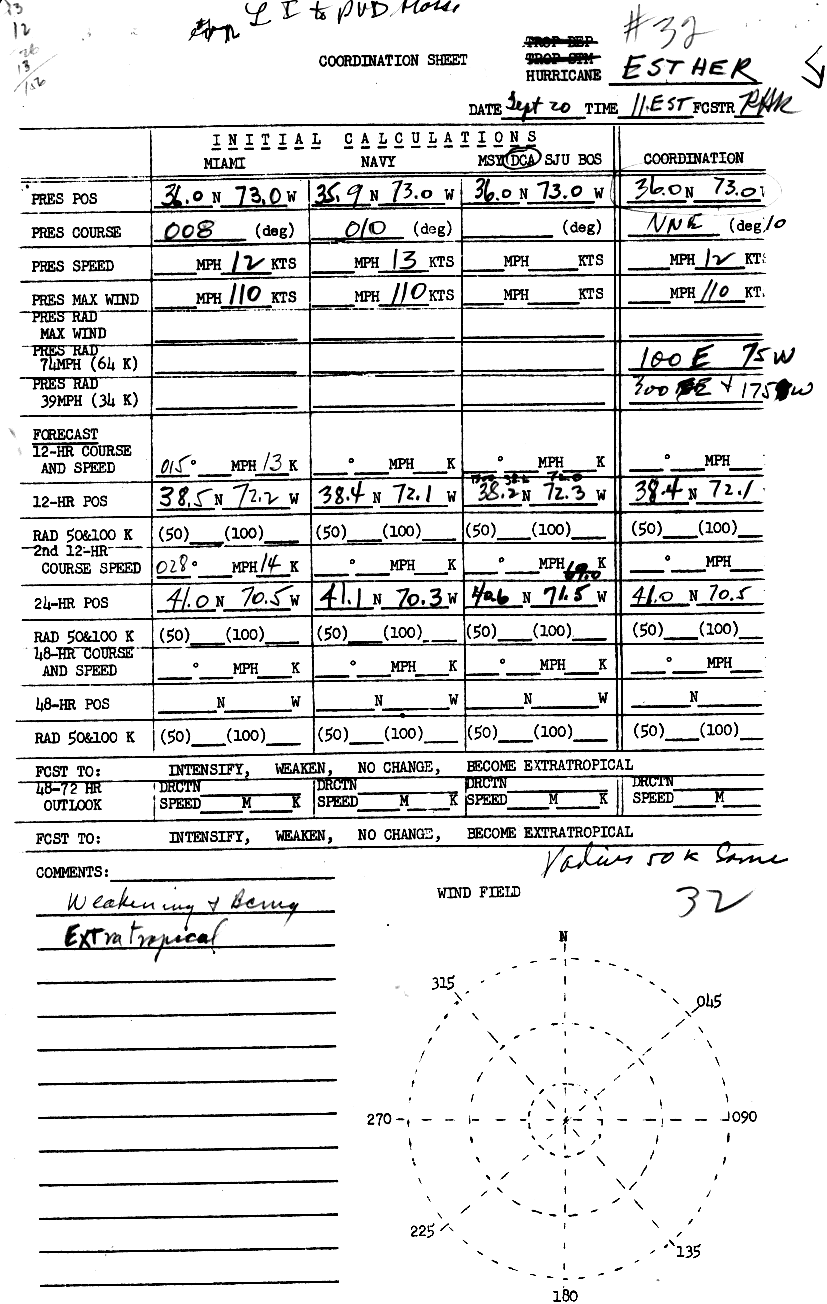 13
12
26
13
156
L I to PVD Mass.
# 32
COORDINATION SHEET
TROP DEP
TROP STM
HURRICANE ESTHER
DATE Sept 20 TIME 11 EST FCSTR
INITIAL CALCULATIONS
MIAMI NAVY MSY DCA SJU BOS COORDINATION
PRES POS 36.0 N 73.0 W 35.9 N 73.0 W 36.0 N 73.0 W 36.0 N 73.0
PRES COURSE 008 (deg) 010 (deg) (deg) NNE (deg) 10
PRES SPEED MPH 12 KTS MPH 13 KTS MPH KTS MPH 12 KTS
PRES MAX WIND MPH 110 KTS MPH 110 KTS MPH KTS MPH 110 KT.
PRES RAD
MAX WIND
PRES RAD
74MPH (64 K) 100 E 75 W
PRES RAD
39MPH (34 K) 300 E + 175 W
FORECAST
12-HR COURSE
AND SPEED 015° MPH 13 K ° MPH K ° MPH K ° MPH
12-HR POS 38.5 N 72.2 W 38.4 N 72.1 W 38.2 N 72.3 W 38.4 N 72.1
RAD 50&100 K (50) (100) (50) (100) (50) (100) (50) (100)
2nd 12-HR
COURSE SPEED 028° MPH 14 K ° MPH K ° MPH K ° MPH
69.0
24-HR POS 41.0 N 70.5 W 41.1 N 70.3 W 40.6 N 71.5 W 41.0 N 70.5
RAD 50&100 K (50) (100) (50) (100) (50) (100) (50) (100)
48-HR COURSE
AND SPEED ° MPH K ° MPH K ° MPH K ° MPH
48-HR POS N W N W N W N
RAD 50&100 K (50) (100) (50) (100) (50) (100) (50) (100)
FCST TO: INTENSIFY, WEAKEN, NO CHANGE, BECOME EXTRATROPICAL
48-72 HR DRCTN DRCTN DRCTN DRCTN
OUTLOOK SPEED M K SPEED M K SPEED M K SPEED M
FCST TO: INTENSIFY, WEAKEN, NO CHANGE, BECOME EXTRATROPICAL
Radius 50 K Same
COMMENTS:
Weakening & Becmg
Extratropical
WIND FIELD
32
N
315
045
270
090
225
135
180